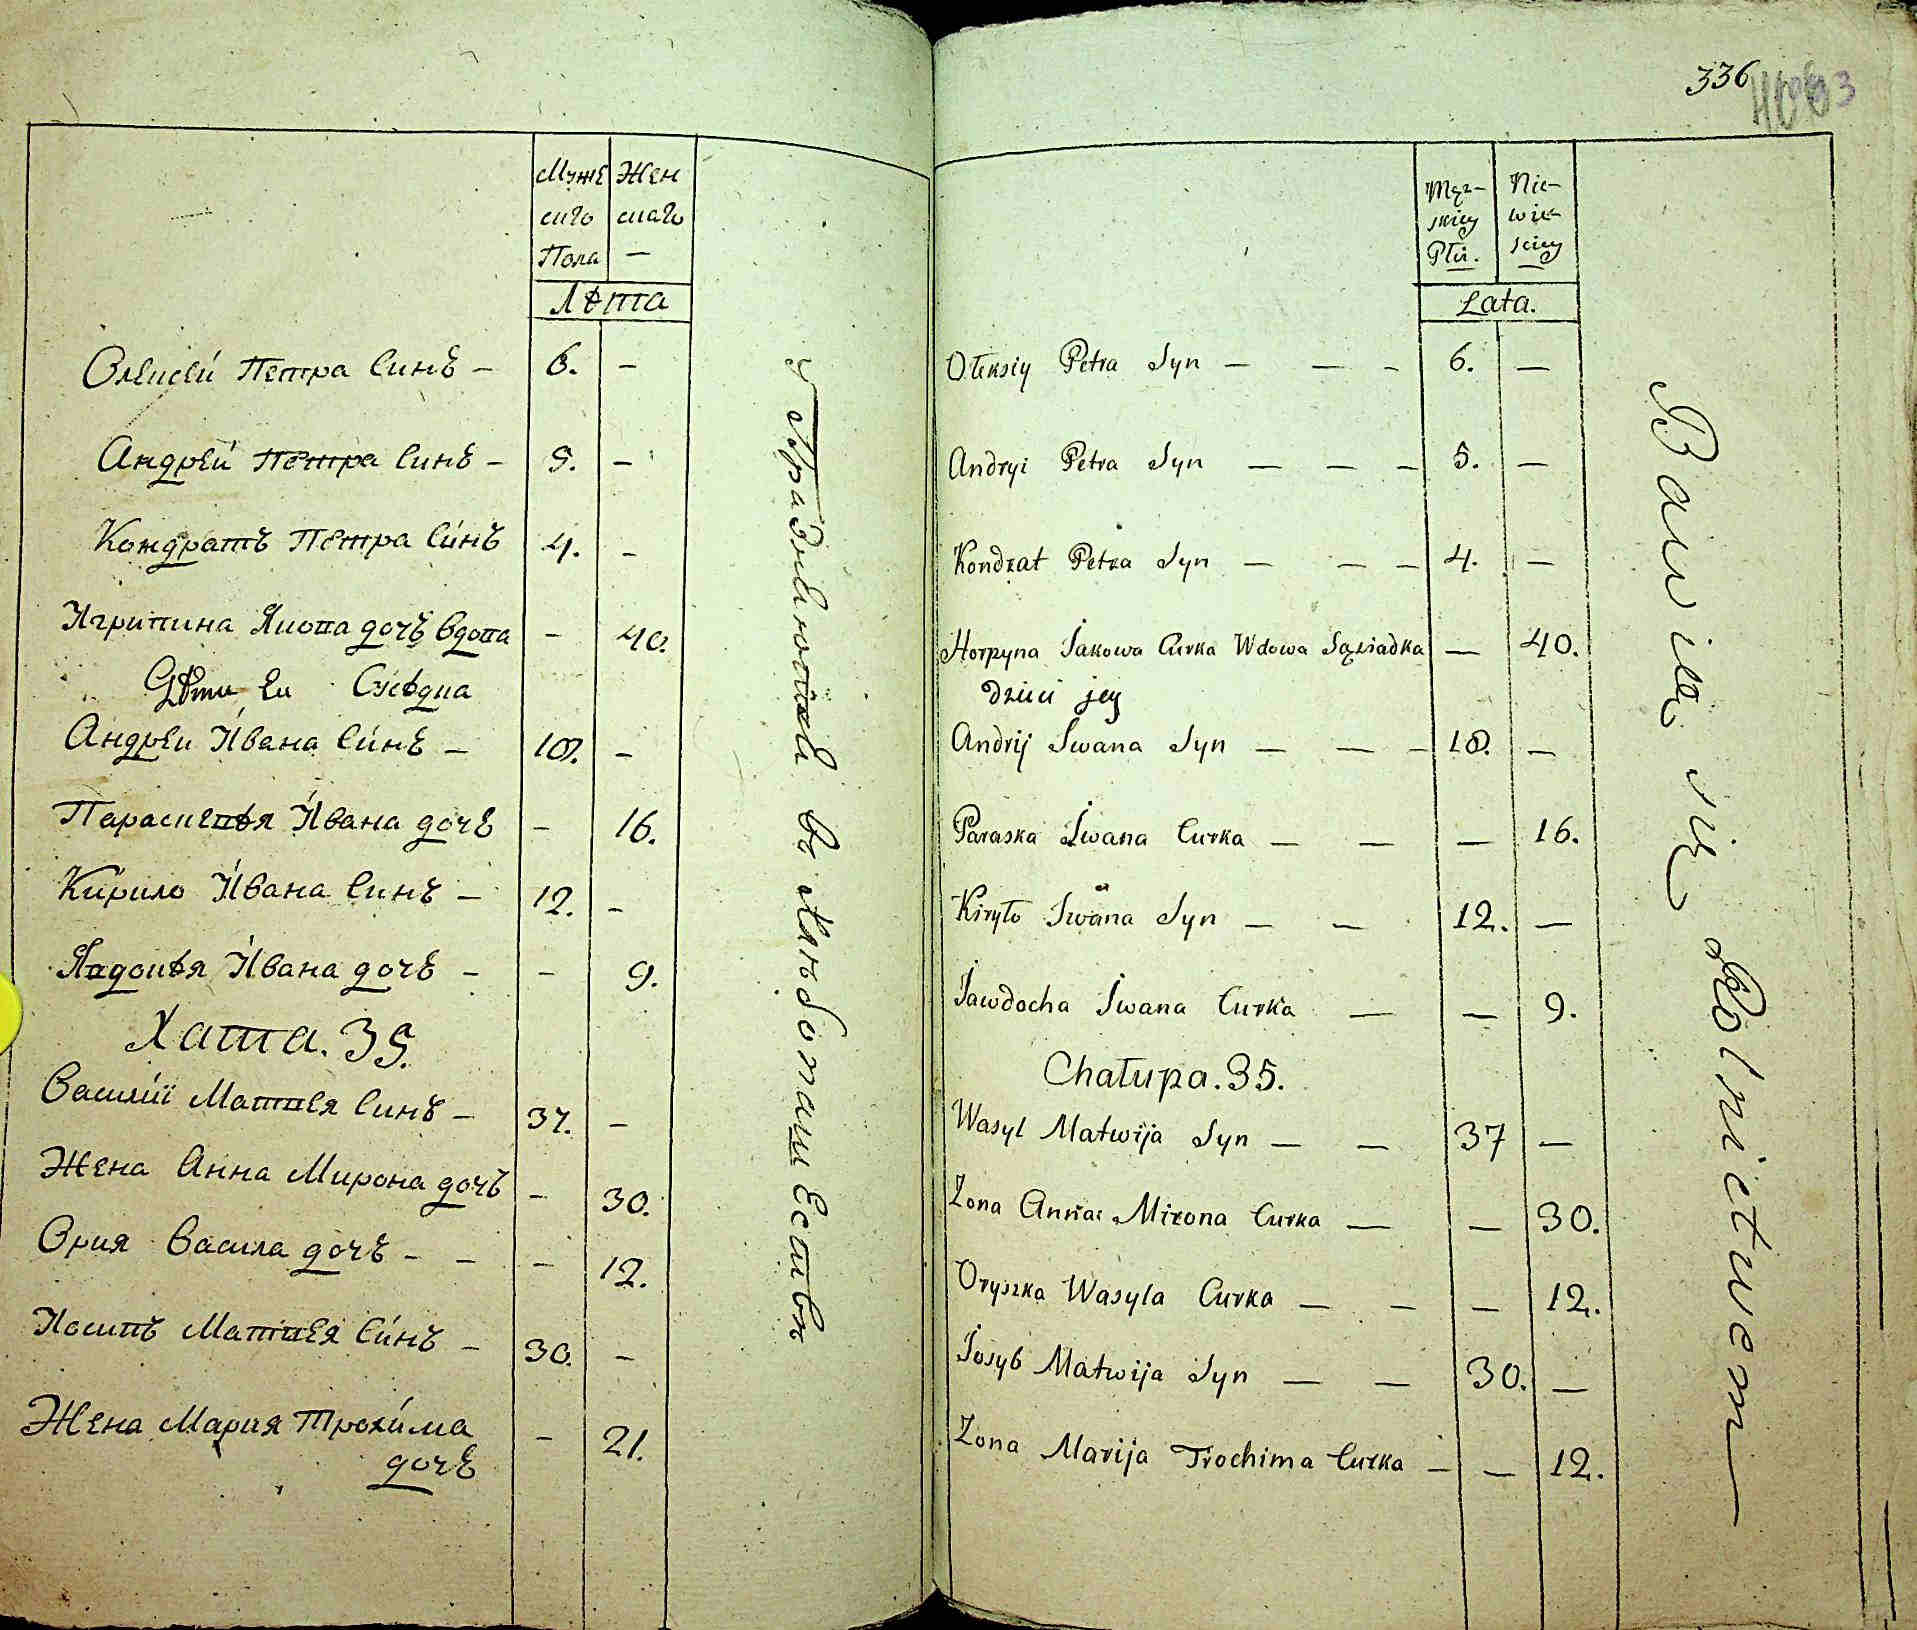 Муже Жен
скго скаго
Пола —
Лѣта
Олексѣй Петра Синъ — 6. —
Андрѣй Петра Синъ — 5. —
Кондратъ Петра Синъ 4. —
Ягрипина Якова дочъ вдова — 40.
Дѣти Еи Сусѣдка
Андрѣи Ивана Синъ — 18. —
Параскевья Ивана дочъ — 16.
Кирило Ивана Синъ — 12. —
Явдокья Ивана дочъ — — 9.
Хата. 35.
Василій Матвея Синъ — 37. —
Жена Анна Мирона дочъ — 30.
Ория Васила дочъ — — — 12.
Иосипъ Матвея Синъ — 30. —
Жена Мария Трохима — 21.
дочъ
336
Męz- Nie-
skiey wie-
Płci. sciey
Lata.
Oleksiy Petra Syn — — — 6. —
Andryi Petra Syn — — — 5. —
Kondrat Petra Syn — — — 4. —
Horpyna Jakowa Curka Wdowa Sąsiadka — 40.
dzieci jey
Andrij Iwana Syn — — — 18. —
Paraska Iwana Curka — — — 16.
Kiryło Iwana Syn — — 12. —
Jawdocha Iwana Curka — — 9.
Chałupa. 35.
Wasyl Matwija Syn — — 37 —
Zona Anna Mirona Curka — — 30.
Oryszka Wasyla Curka — — — 12.
Josyb Matwija Syn — — 30. —
Zona Marija Trochima Curka — — 12.
Bawią się Rolnictwem